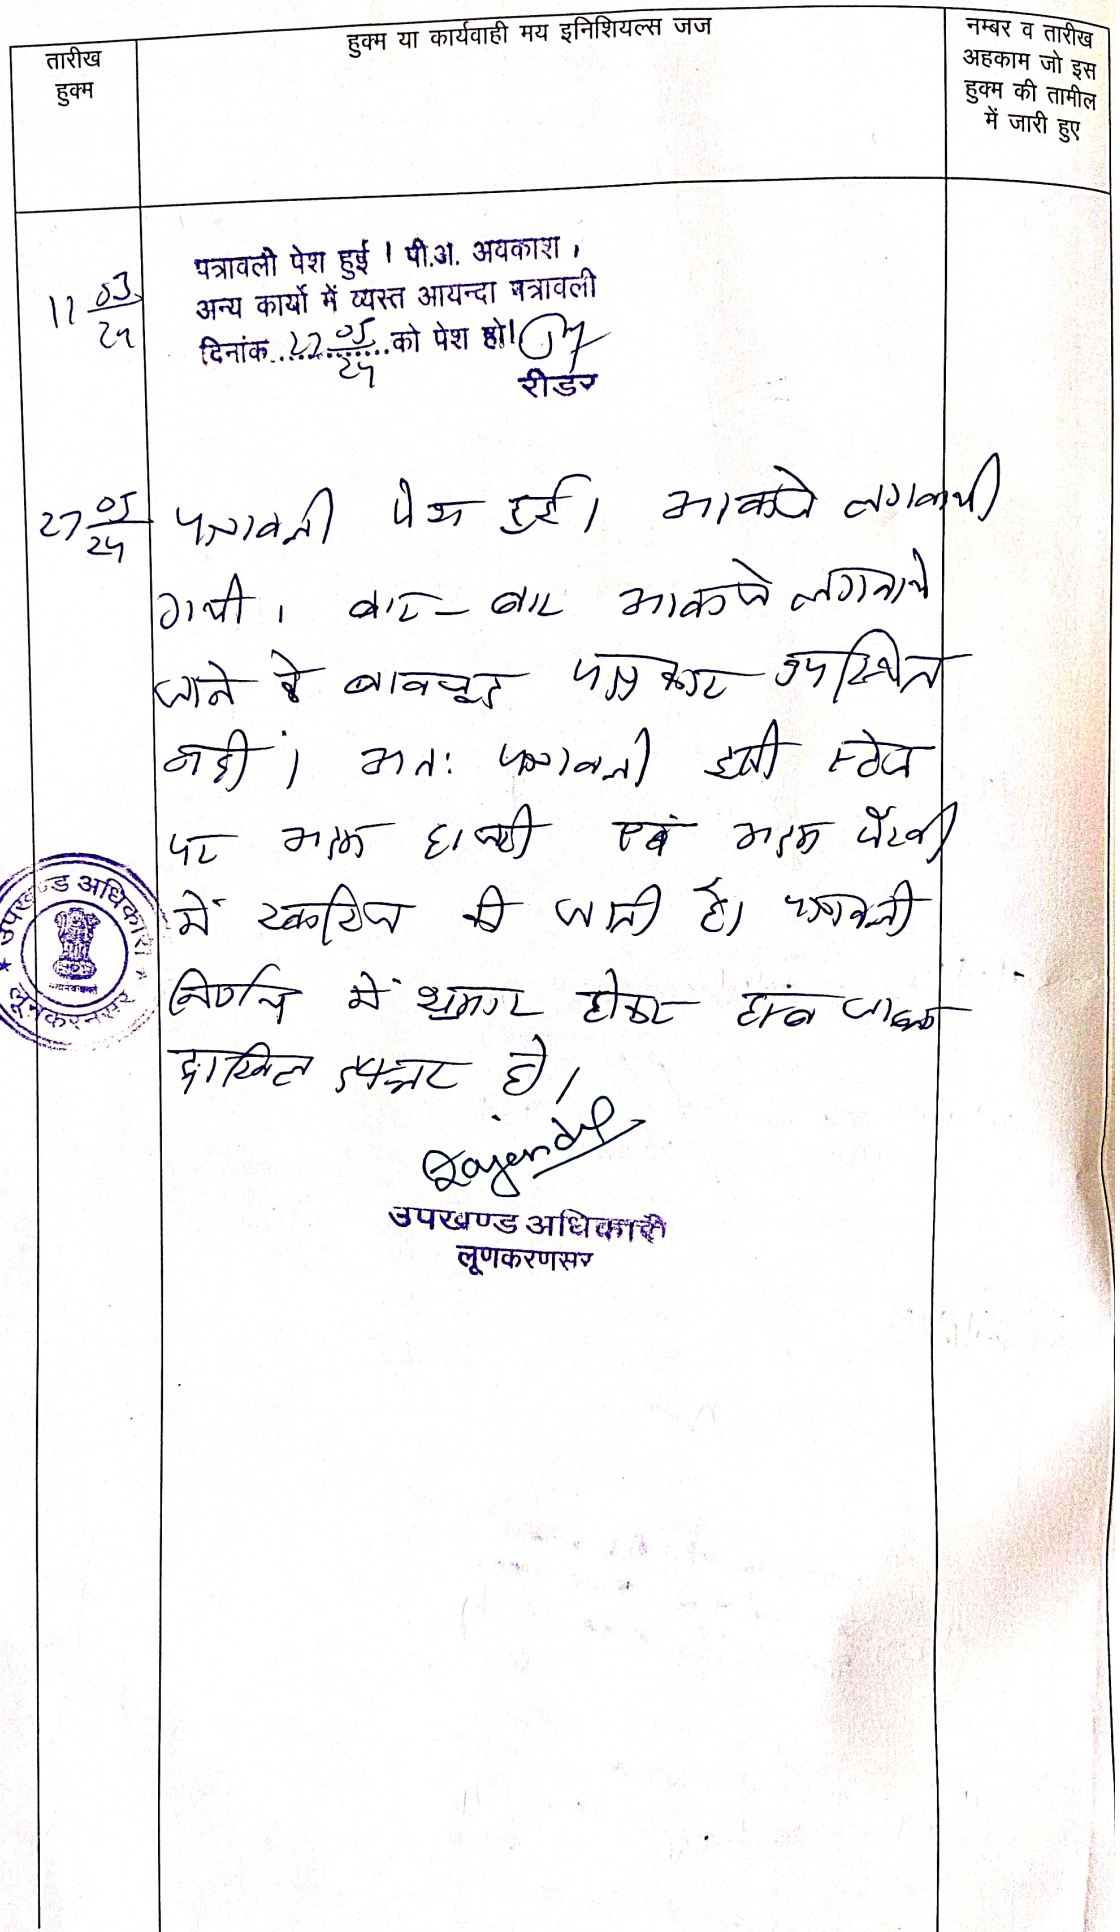 तारीख
हुक्म
हुक्म या कार्यवाही मय इनिशियल्स जज
नम्बर व तारीख
अहकाम जो इस
हुक्म की तामील
में जारी हुए
11 03/24
पत्रावली पेश हुई । पी.अ. अवकाश ,
अन्य कार्यो में व्यस्त आयन्दा पत्रावली
दिनांक 27 05/24 को पेश हो।
रीडर
27 05/24
पत्रावली पेश हुई। आवाजे लगवायी
गयी । बार-बार आवाजे लगवाये
जाने के बावजूद पक्षकार उपस्थित
नहीं । अतः पत्रावली इसी स्टेज
पर अदम हाजरी एवं अदम पैरवी
में खारिज की जाती है। पत्रावली
निर्णित में शुमार होकर बाद
दाखिल दफ्तर हो।
उपखण्ड अधिकारी
लूनकरनसर
उपखण्ड अधिकारी
लूणकरणसर